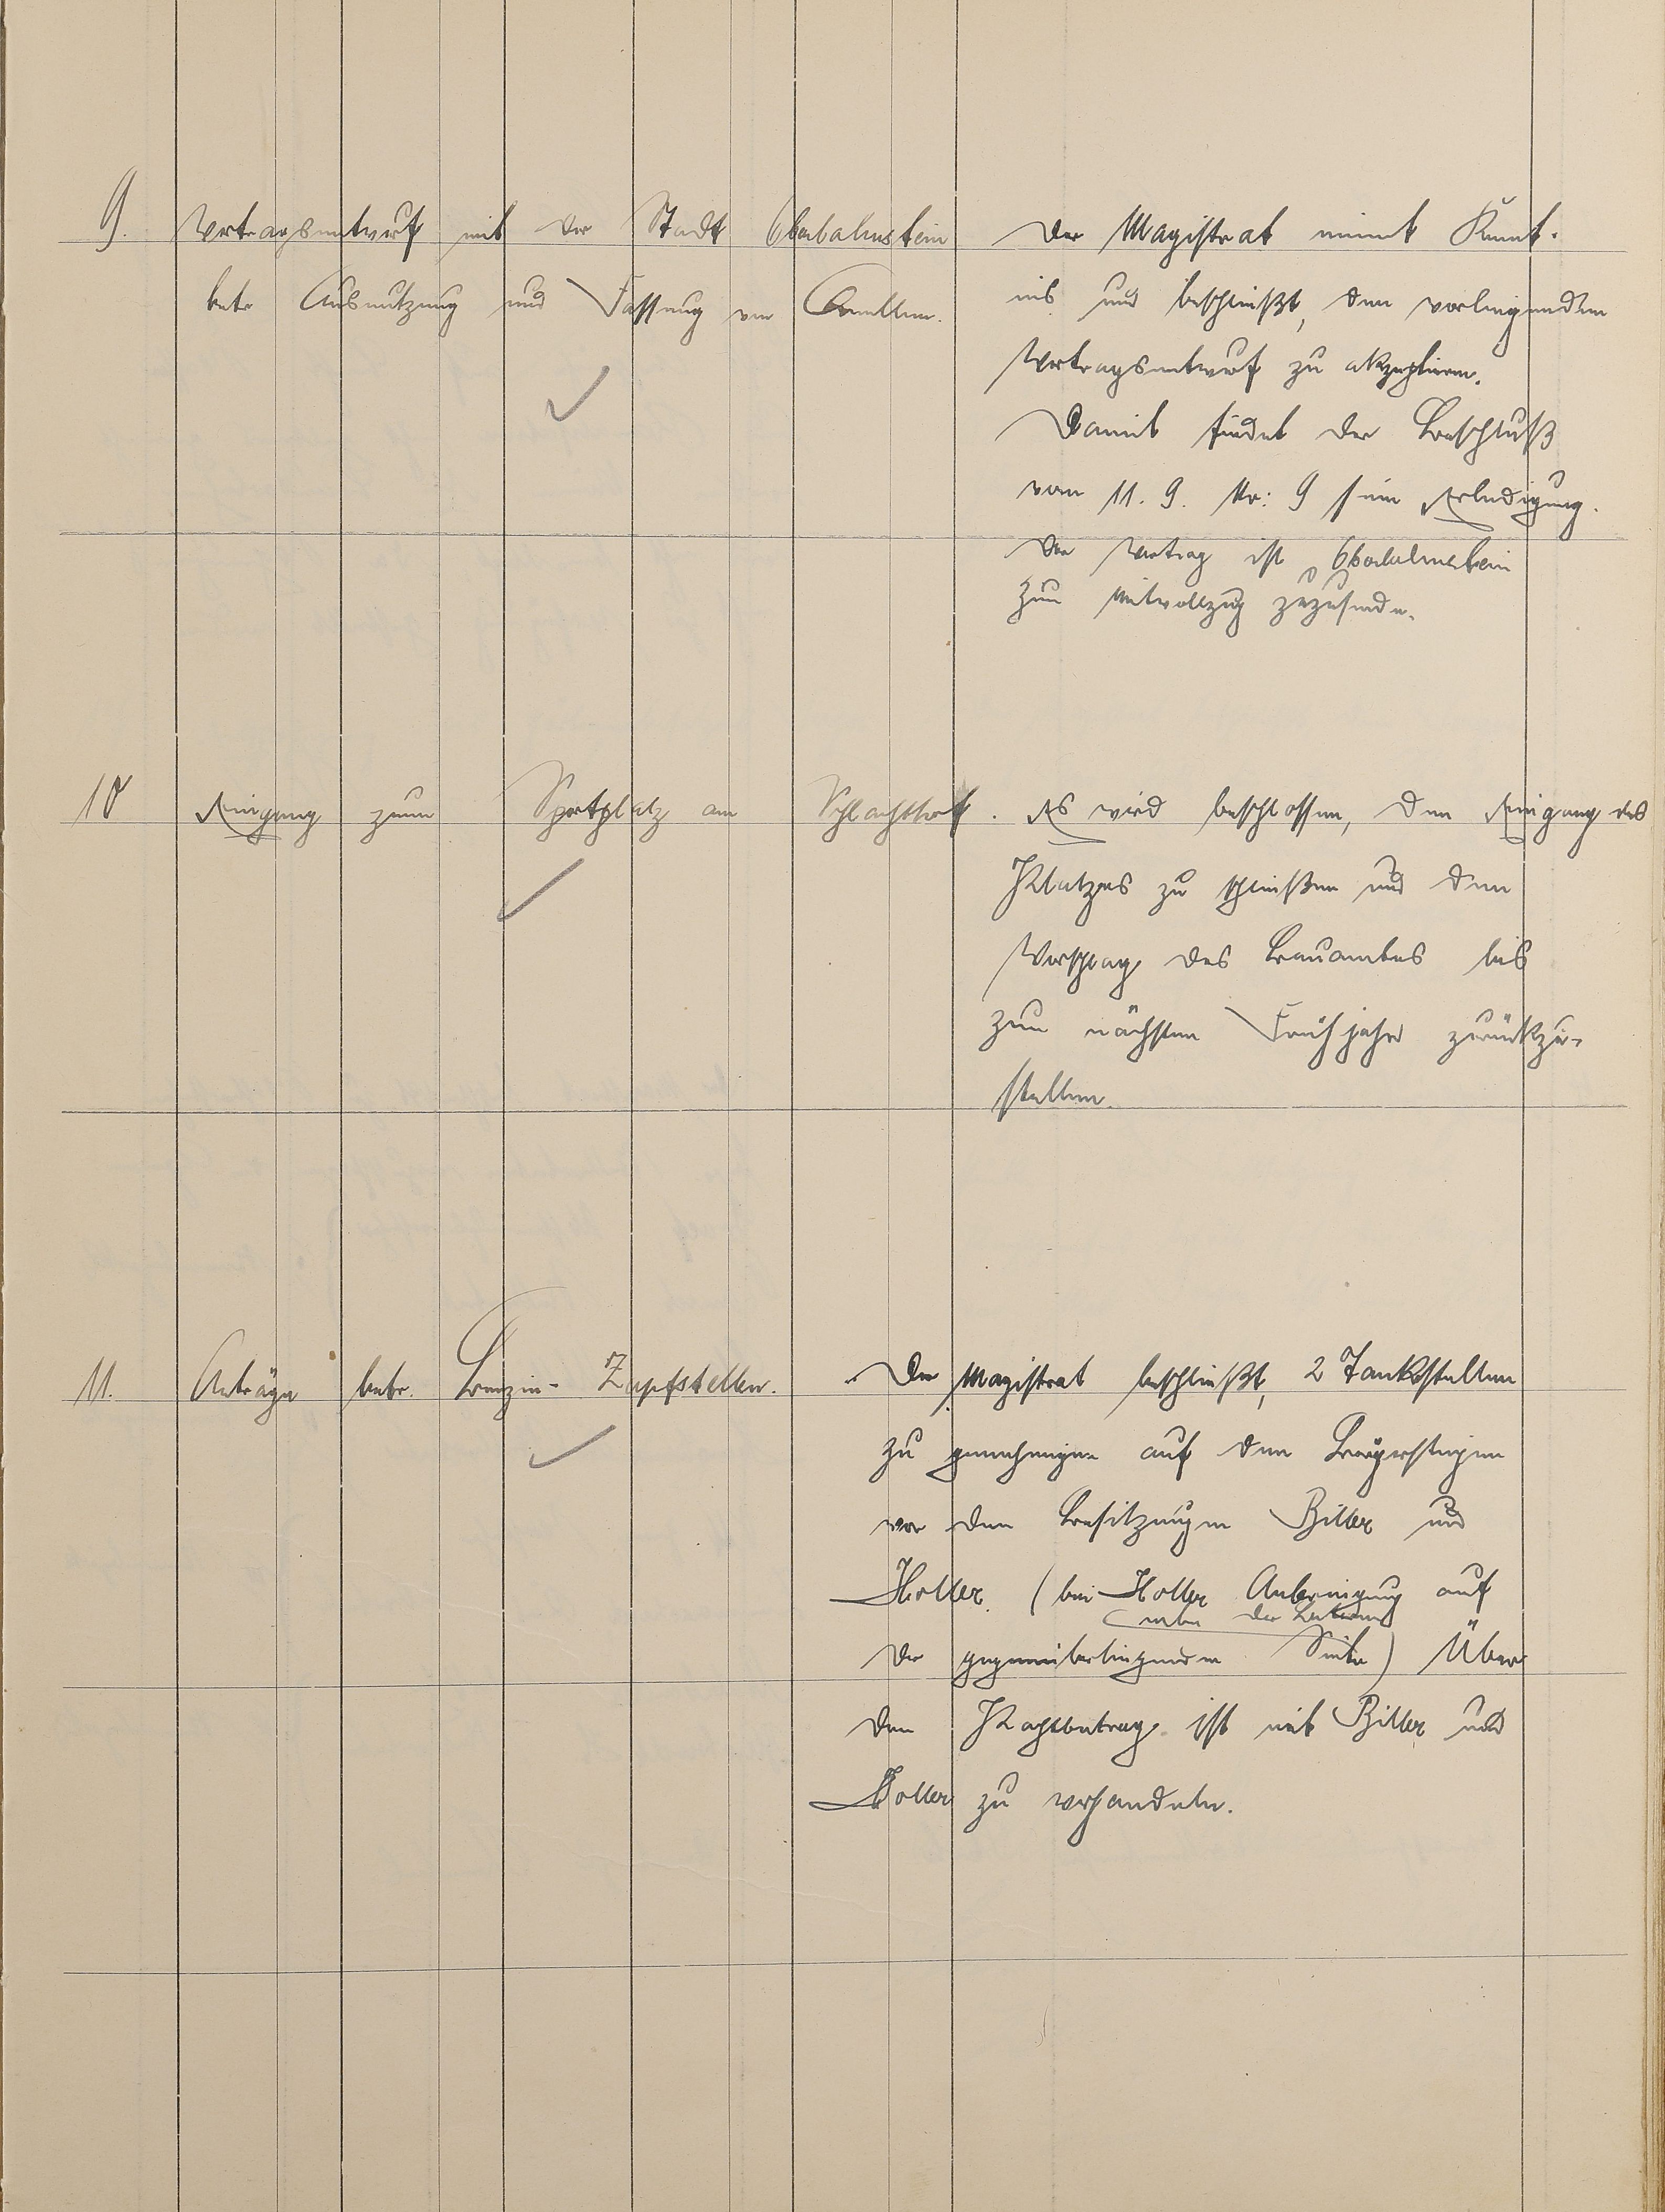 9.
Vertragsentwurf mit der Stadt Oberlahnstein
betr. Ausnutzung und Fassung von Quellen.
Der Magistrat nimmt Kennt-
nis und beschließt, den vorliegenden
Vertragsentwurf zu akzeptieren.
Damit findet der Beschluß
vom 11. 9. Nr: 9 sein Erledigung.
Der Vertrag ist Oberlahnstein
zum Mitvollzug zuzusenden.
10
Eingang zum Sportplatz am Schlachthof.
Es wird beschlossen, den Eingang des
Platzes zu schließen und den
Vorschlag des Bauamtes bis
zum nächsten Frühjahr zurückzu-
stellen.
11.
Anträge betr. Benzin-Zapfstellen.
Der Magistrat beschließt, 2 Tankstellen
zu genehmigen auf den Bürgersteigen
vor den Besitzungen Biller und
Holler. (bei Holler Anbringung auf
neben der Laterne
der gegenüberliegenden Seite) Über
den Pachtbetrag ist mit Biller und
Holler zu verhandeln.